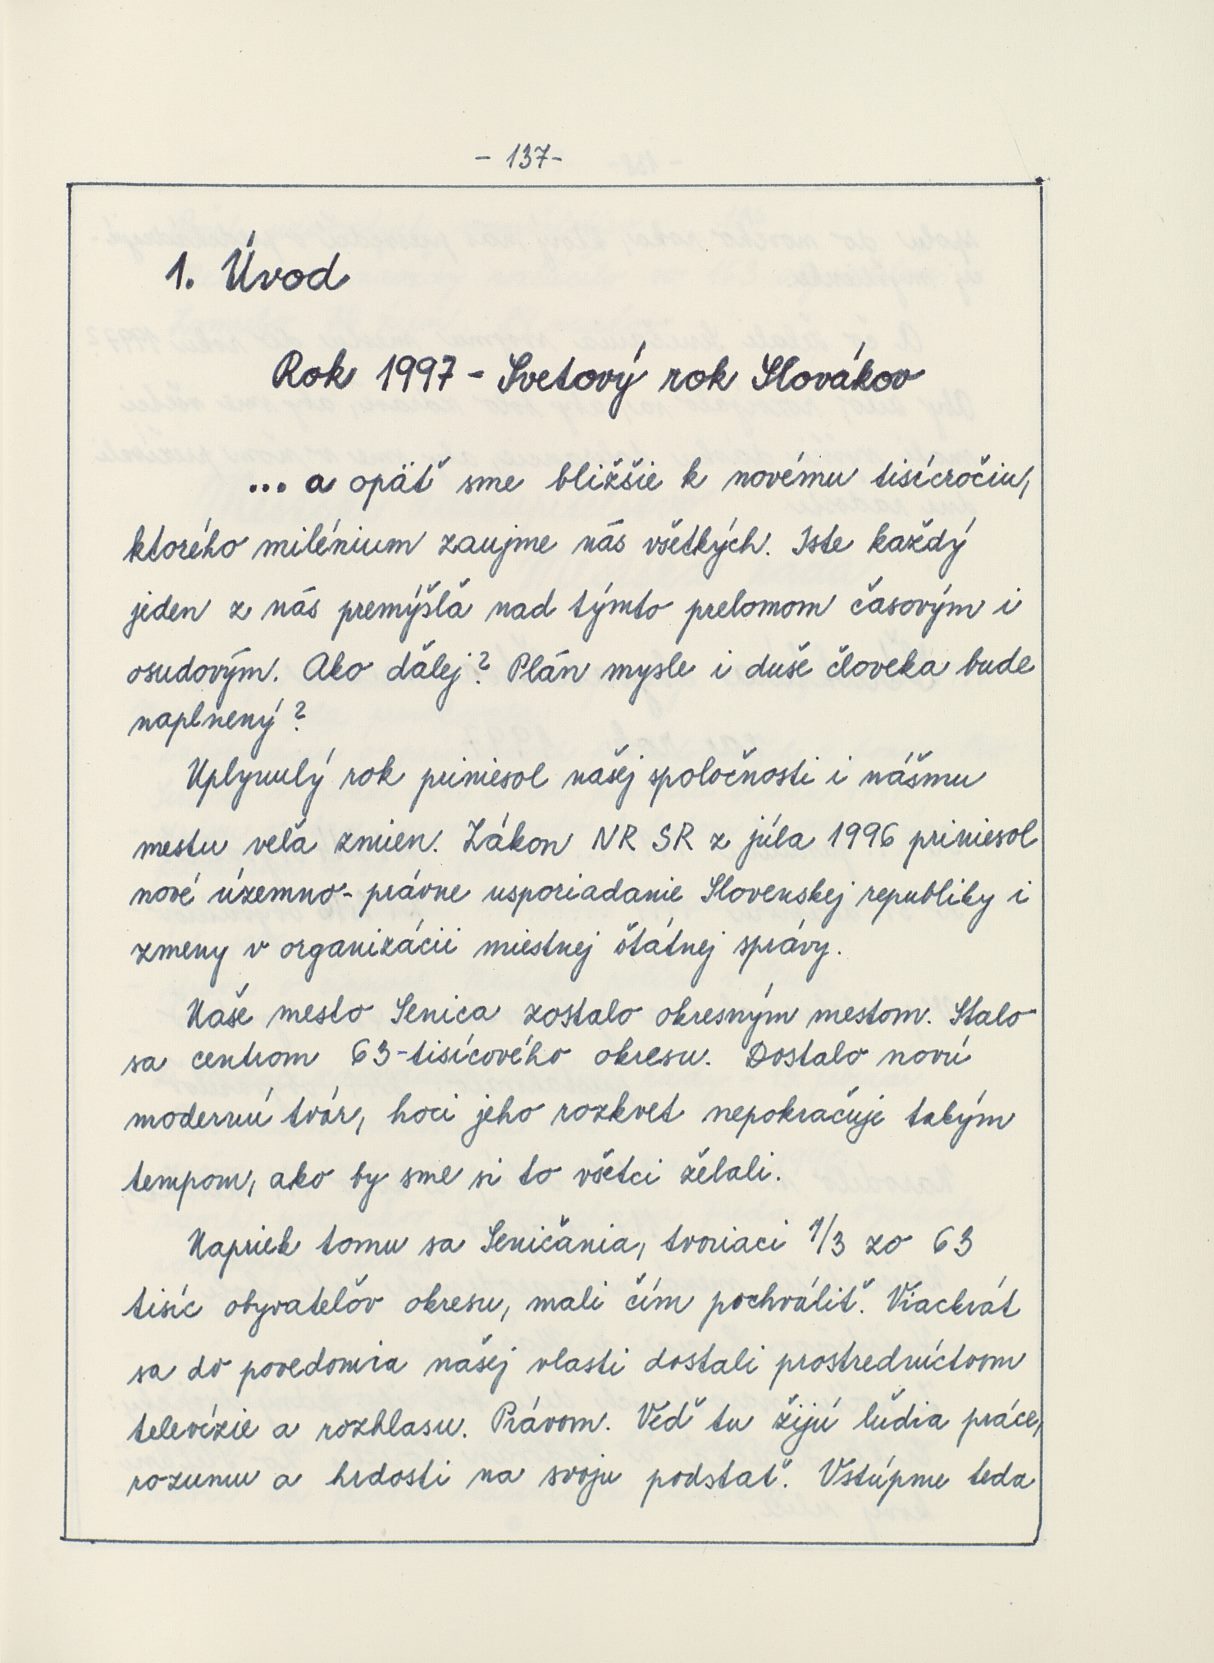 - 137-
1. Úvod
Rok 1997 - Svetový rok Slovákov
... a opäť sme bližšie k novému tisícročiu,
ktorého milénium zaujme nás všetkých. Iste každý
jeden z nás premýšľa nad týmto prelomom časovým i
osudovým. Ako ďalej? Plán mysle i duše človeka bude
naplnený?
Uplynulý rok priniesol našej spoločnosti i nášmu
mestu veľa zmien. Zákon NR SR z júla 1996 priniesol
nové územno-právne usporiadanie Slovenskej republiky i
zmeny v organizácii miestnej štátnej správy.
Naše mesto Senica zostalo okresným mestom. Stalo
sa centrom 63-tisícového okresu. Dostalo novú
modernú tvár, hoci jeho rozkvet nepokračuje takým
tempom, ako by sme si to všetci želali.
Napriek tomu sa Seničania, tvoriaci 1/3 zo 63
tisíc obyvateľov okresu, mali čím pochváliť. Viackrát
sa do povedomia našej vlasti dostali prostredníctvom
televízie a rozhlasu. Právom. Veď tu žijú ľudia práce,
rozumu a hrdosti na svoju podstať. Vstúpme teda